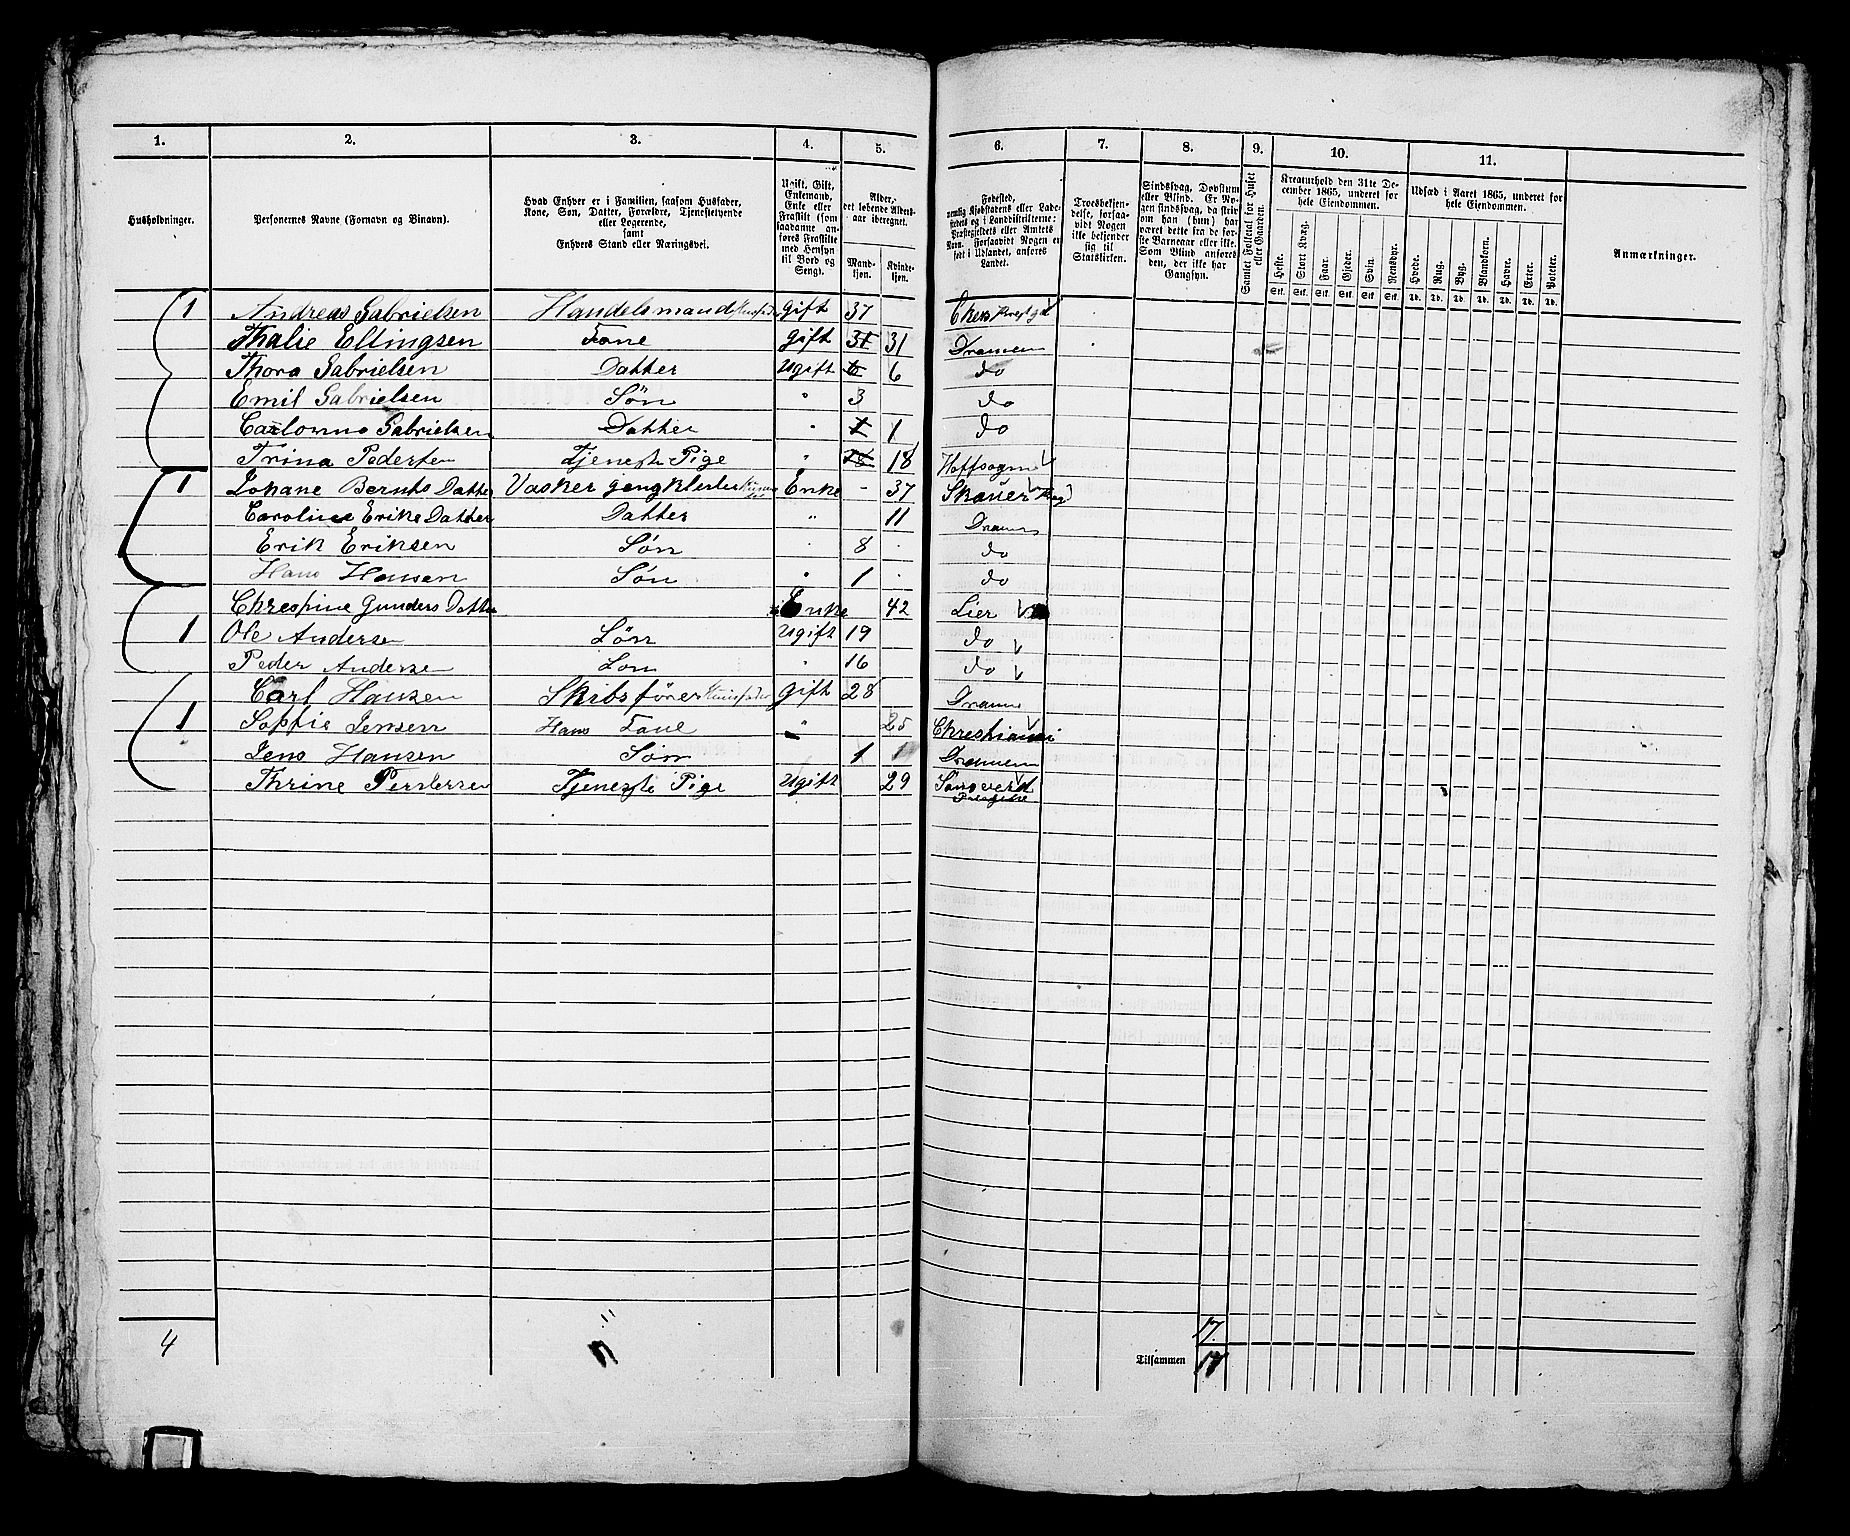 1. 2. 3. 4. 5. 6. 7. 8. 9. 10. 11.
Husholdninger.
Personernes Navne (Fornavn og Binavn).
Hvad Enhver er i Familien, saasom Husfader,
Kone, Søn, Datter, Forældre, Tjenestetyende
eller Logerende,
samt
Enhvers Stand eller Næringsvei.
Ugift, Gift,
Enkemand,
Enke eller
Fraskilt (som
saadanne an-
føres Fraskilte
med Hensyn
til Bord og
Seng).
Alder,
det løbende Alders-
aar iberegnet.
Mand-
kjøn.
Kvinde-
kjøn.
Fødested,
nemlig Kjøbstadens eller Lade-
stedets og i Landdistrikterne:
Præstegjeldets eller Amtets
Navn. Forsaavidt Nogen er
født i Udlandet, anføres
Landet.
Troesbekjen-
delse, forsaa-
vidt Nogen
ikke bekjender
sig til
Statskirken.
Sindssvag, Døvstum
eller Blind. Er No-
gen sindssvag, da skriv
om han (hun) har
været dette fra de før-
ste Barneaar eller ikke.
Som Blind anføres
den, der ikke har
Gangsyn.
Samlet Folketal for Huset
eller Gaarden.
Kreaturhold den 31te De-
cember 1865, underet for
hele Eiendommen.
Heste. Stort Kvæg. Faar. Gjeder. Svin. Rensdyr.
Stk. Stk. Stk. Stk. Stk. Stk.
Udsæd i Aaret 1865, underet for
hele Eiendommen.
Hvede. Rug. Byg. Blandkorn. Havre. Erter. Poteter.
Td. Td. Td. Td. Td. Td. Td.
Anmærkninger.
1 Andreas Gabrielsen Handelsmand Husfader Gift 37 Eker Prestgd
Thalie Ellingsen Kone Gift 31 31 Dramen
Thora Gabrielsen Datter Ugift 6 6 do
Emil Gabrielsen Søn " 3 do
Gabrielsen Datter " 1 1 do
Trina Pedersen Tjeneste Pige " 18 18 Hoffsogn
1 Johane Bernts Datter Vasker Enke - 37 Skauer
Caroline Erike Datter Datter " 11 Dramen
Erik Eriksen Søn " 8 do
Hans Hansen Søn " 1 do
Chrestine Gunders Datter Enke 42 Lier
1 Ole Andersen Søn Ugift 19 do
Peder Andersen Søn " 16 do
Carl Hansen Skibsfører Husfader Gift 28 Dramen
1 Sophie Jensen Hans Kone " 25 Chrestiania
Jens Hansen Søn 1 Dramen
Thrine Pedersen Tjeneste Pige Ugift 29
4
17
Tilsammen 17